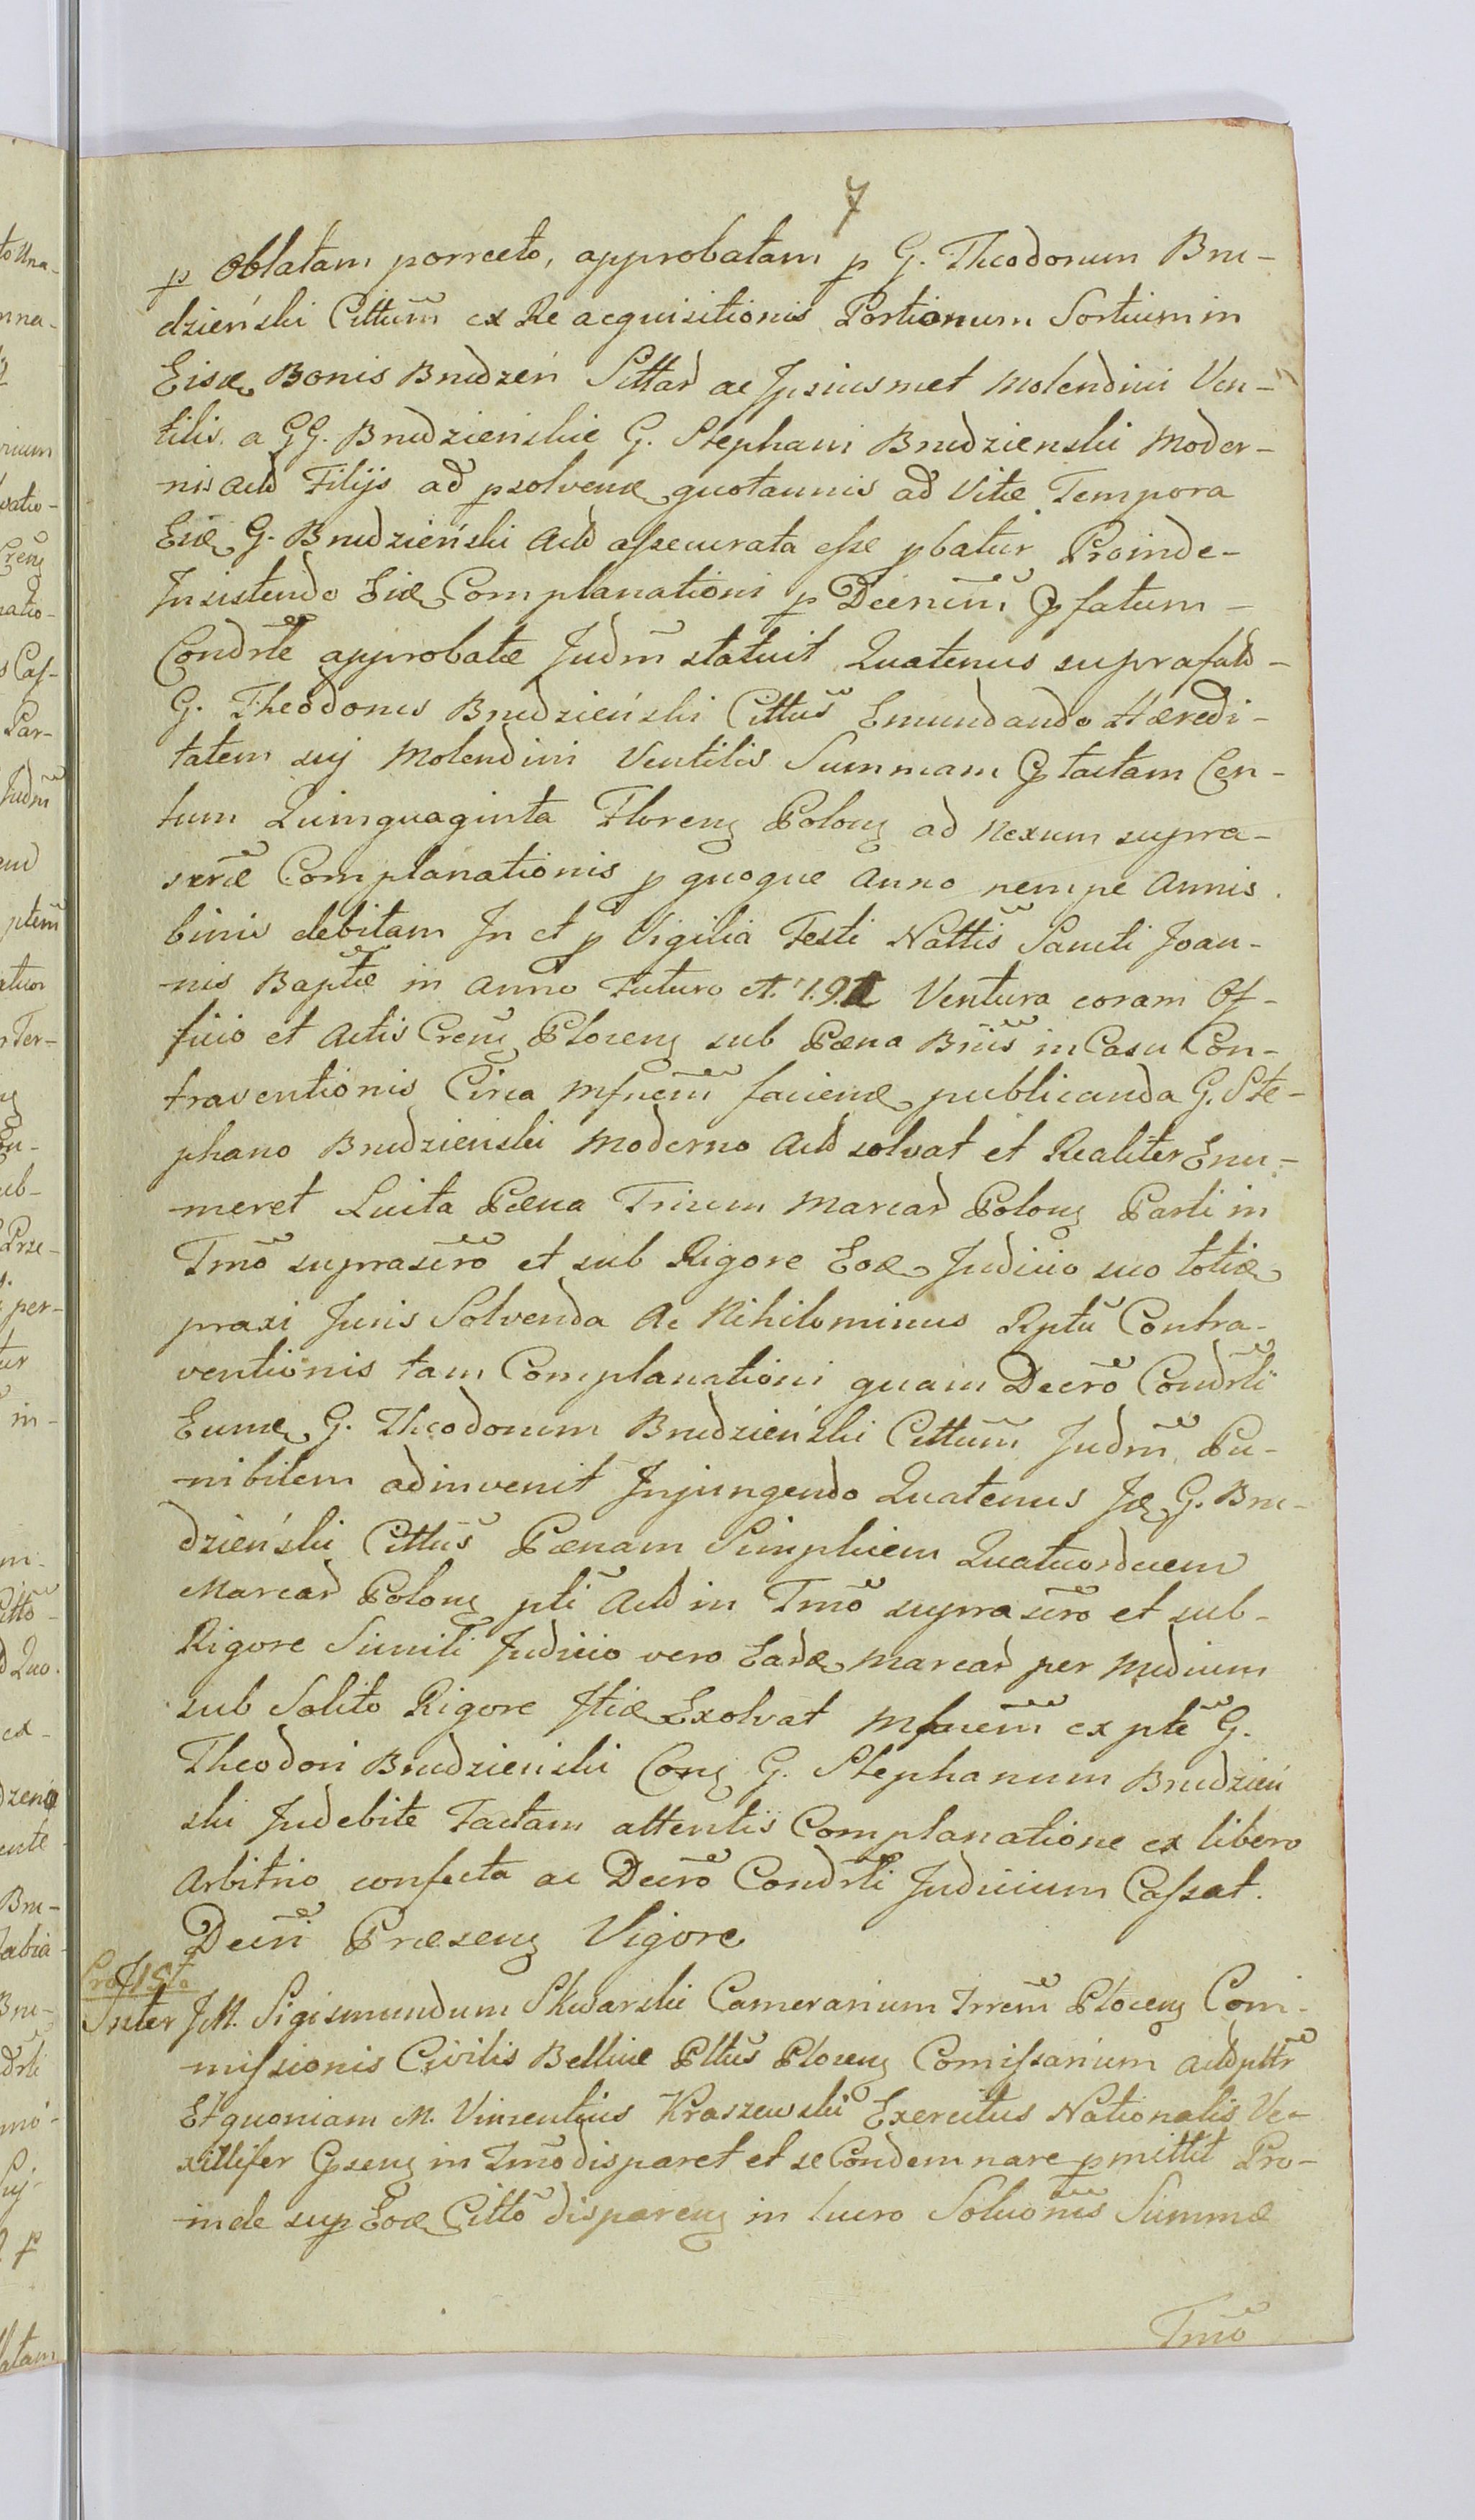 7
p Oblatam porrecto, approbatam p G. Theodorum Bru-
dzieński Cittum̃ ex Re acquisitionis Portionum Sortium in
Eisd Bonis Brudzeń Sittar ac Ipsiusmet Molendini Ven-
tilis a GG. Brudzienskie G. Stephani Brudzienski Moder-
nis Acto Filijs ad psolvend quotannis ad Vitæ Tempora
Eid G. Brudzieński Acto assecurata esse pbatur Proinde-
Insistendo Eid Complanationi p Decrum̃ Pfatum-
Condrtẽ approbatæ Judm̃ statuit Quatenus suprafato-
G. Theodorus Brudzieński Cittus̃ Emundando Hæredi-
tatem sij Molendini Ventilis Summam Ptactam Cen-
tum Quinquaginta Floreng Polong ad Nexum supra-
scræ̃ Complanationis p quoque Anno nempe Annis
binis debitam In et p Vigilia Festi Nattis̃ Sancti Joan-
nis Baptæ̃ in Anno Futuro A. 7.9.1 Ventura coram Of-
ficio et Actis Creng Ploceng sub Pæna Bniis̃ in Casu Con-
traventionis Circa Mfnem̃ faciend publicanda G. Ste-
phano Brudzienski Moderno Acto solvat et Realiter Enu-
meret Luita Pæna Trium Marcar Polong Parti in
Tmõ suprascrõ et sub Rigore Eod Judicio suo totid
praxi Juris Solvenda Ac Nihilominus Rptũ Contra-
ventionis tam Complanationi quam Decrõ Condrtĩ
Eumd G. Theodorum Brudzieński Cittum̃ Judm̃ Pu-
nibilem adinvenit Injungendo Quatenus Id G. Bru-
dzieński Cittus̃ Pænam Simplicem Quatuordecem
Marcar Polong ptĩ Acto in Tmõ suprascrõ et sub-
Rigore Simili Judicio vero Eard Marcar per Medium
sub Solito Rigore Itid Exolvat Mfnem̃ ex ptẽ G.
Theodori Brudzienski Cong G. Stephanum Brudzień
ski Indebite Factam attentis Complanatione ex libero
Arbitrio confecta ac Decrõ Condrtĩ Judicium Cassat.
Decrĩ Præseng Vigore
Inter JM. Sigismundum Skwarski Camerarium Trrem̃ Ploceng Com-
missionis Civilis Bellicæ Pltus̃ Ploceng Comissarium Acto
Et quoniam M. Vincentius Kraszewski Exercitus Nationalis Ve-
xillifer Pseng in Tmõ disparet et se Condemnare pmittit Pro-
inde sup Eod Cittõ dispareng in lucro Soluonis̃ Summæ
Tmõ